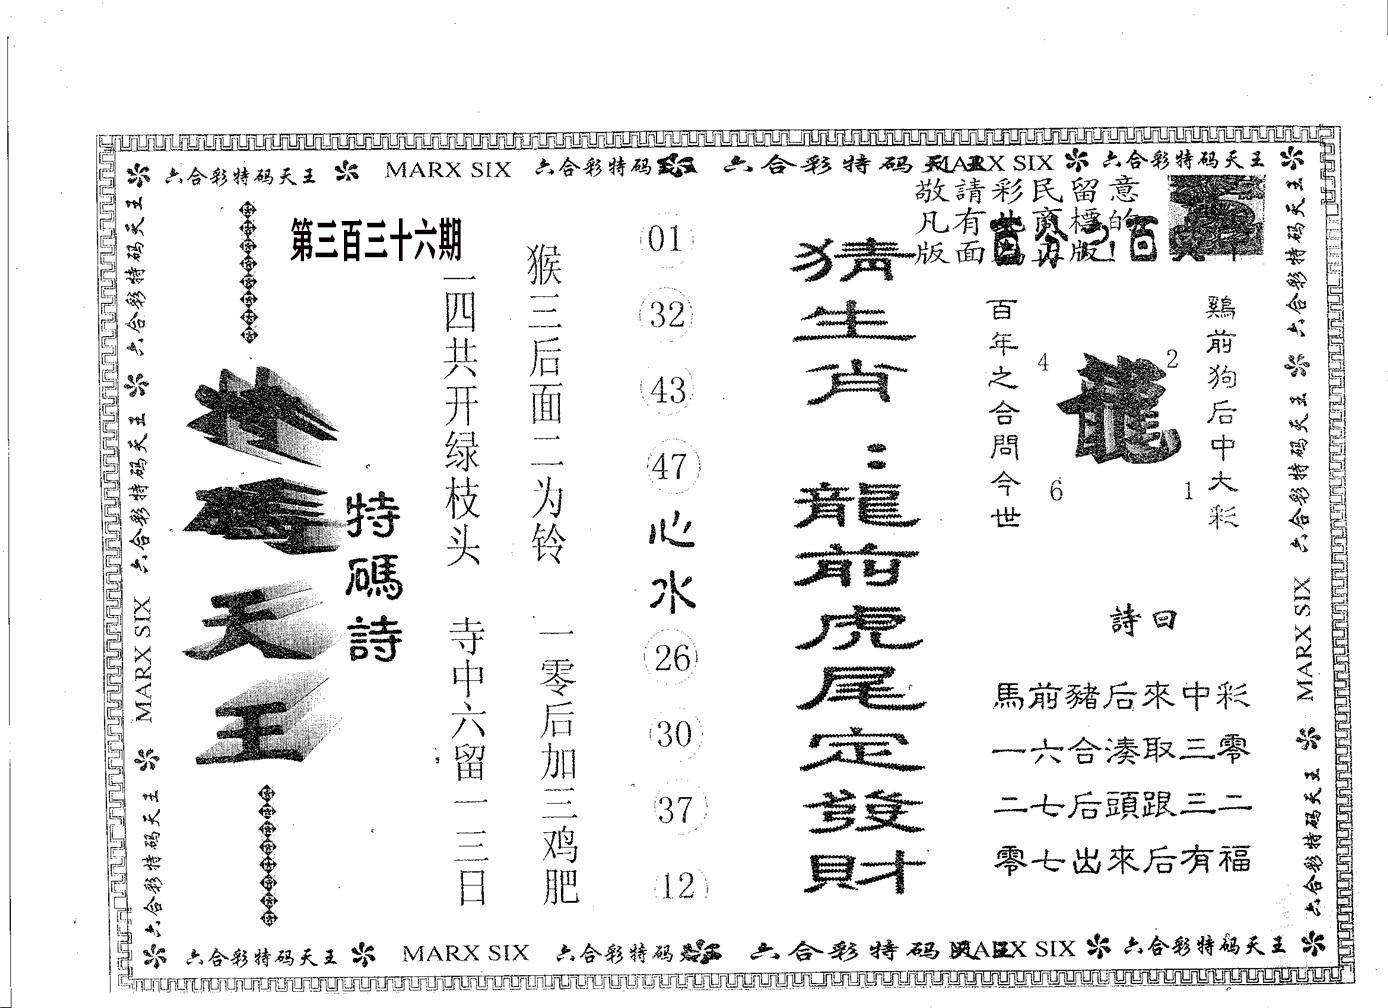 六合彩特码天王 MARX SIX 六合彩特码天王 六合彩特码天王 MARX SIX 六合彩特码天王
敬請彩民留意
凡有此商標的
版面為正版!
第三百三十六期
特碼天王
特碼詩
一四共开绿枝头
寺中六留一三日
猴三后面二为铃
一零后加三鸡肥
01
32
43
47
心水
26
30
37
12
猜生肖:龍前虎尾定發財
鷄前狗后中大彩
百年之合問今世
4
2
龍
6
1
詩曰
馬前豬后來中彩
一六合湊取三零
二七后頭跟三二
零七出來后有福
六合彩特码天王
六合彩特码天王
MARX SIX
六合彩特码天王
六合彩特码天王
六合彩特码天王
MARX SIX
六合彩特码天王
六合彩特码天王 MARX SIX 六合彩特码天王 六合彩特码天王 MARX SIX 六合彩特码天王